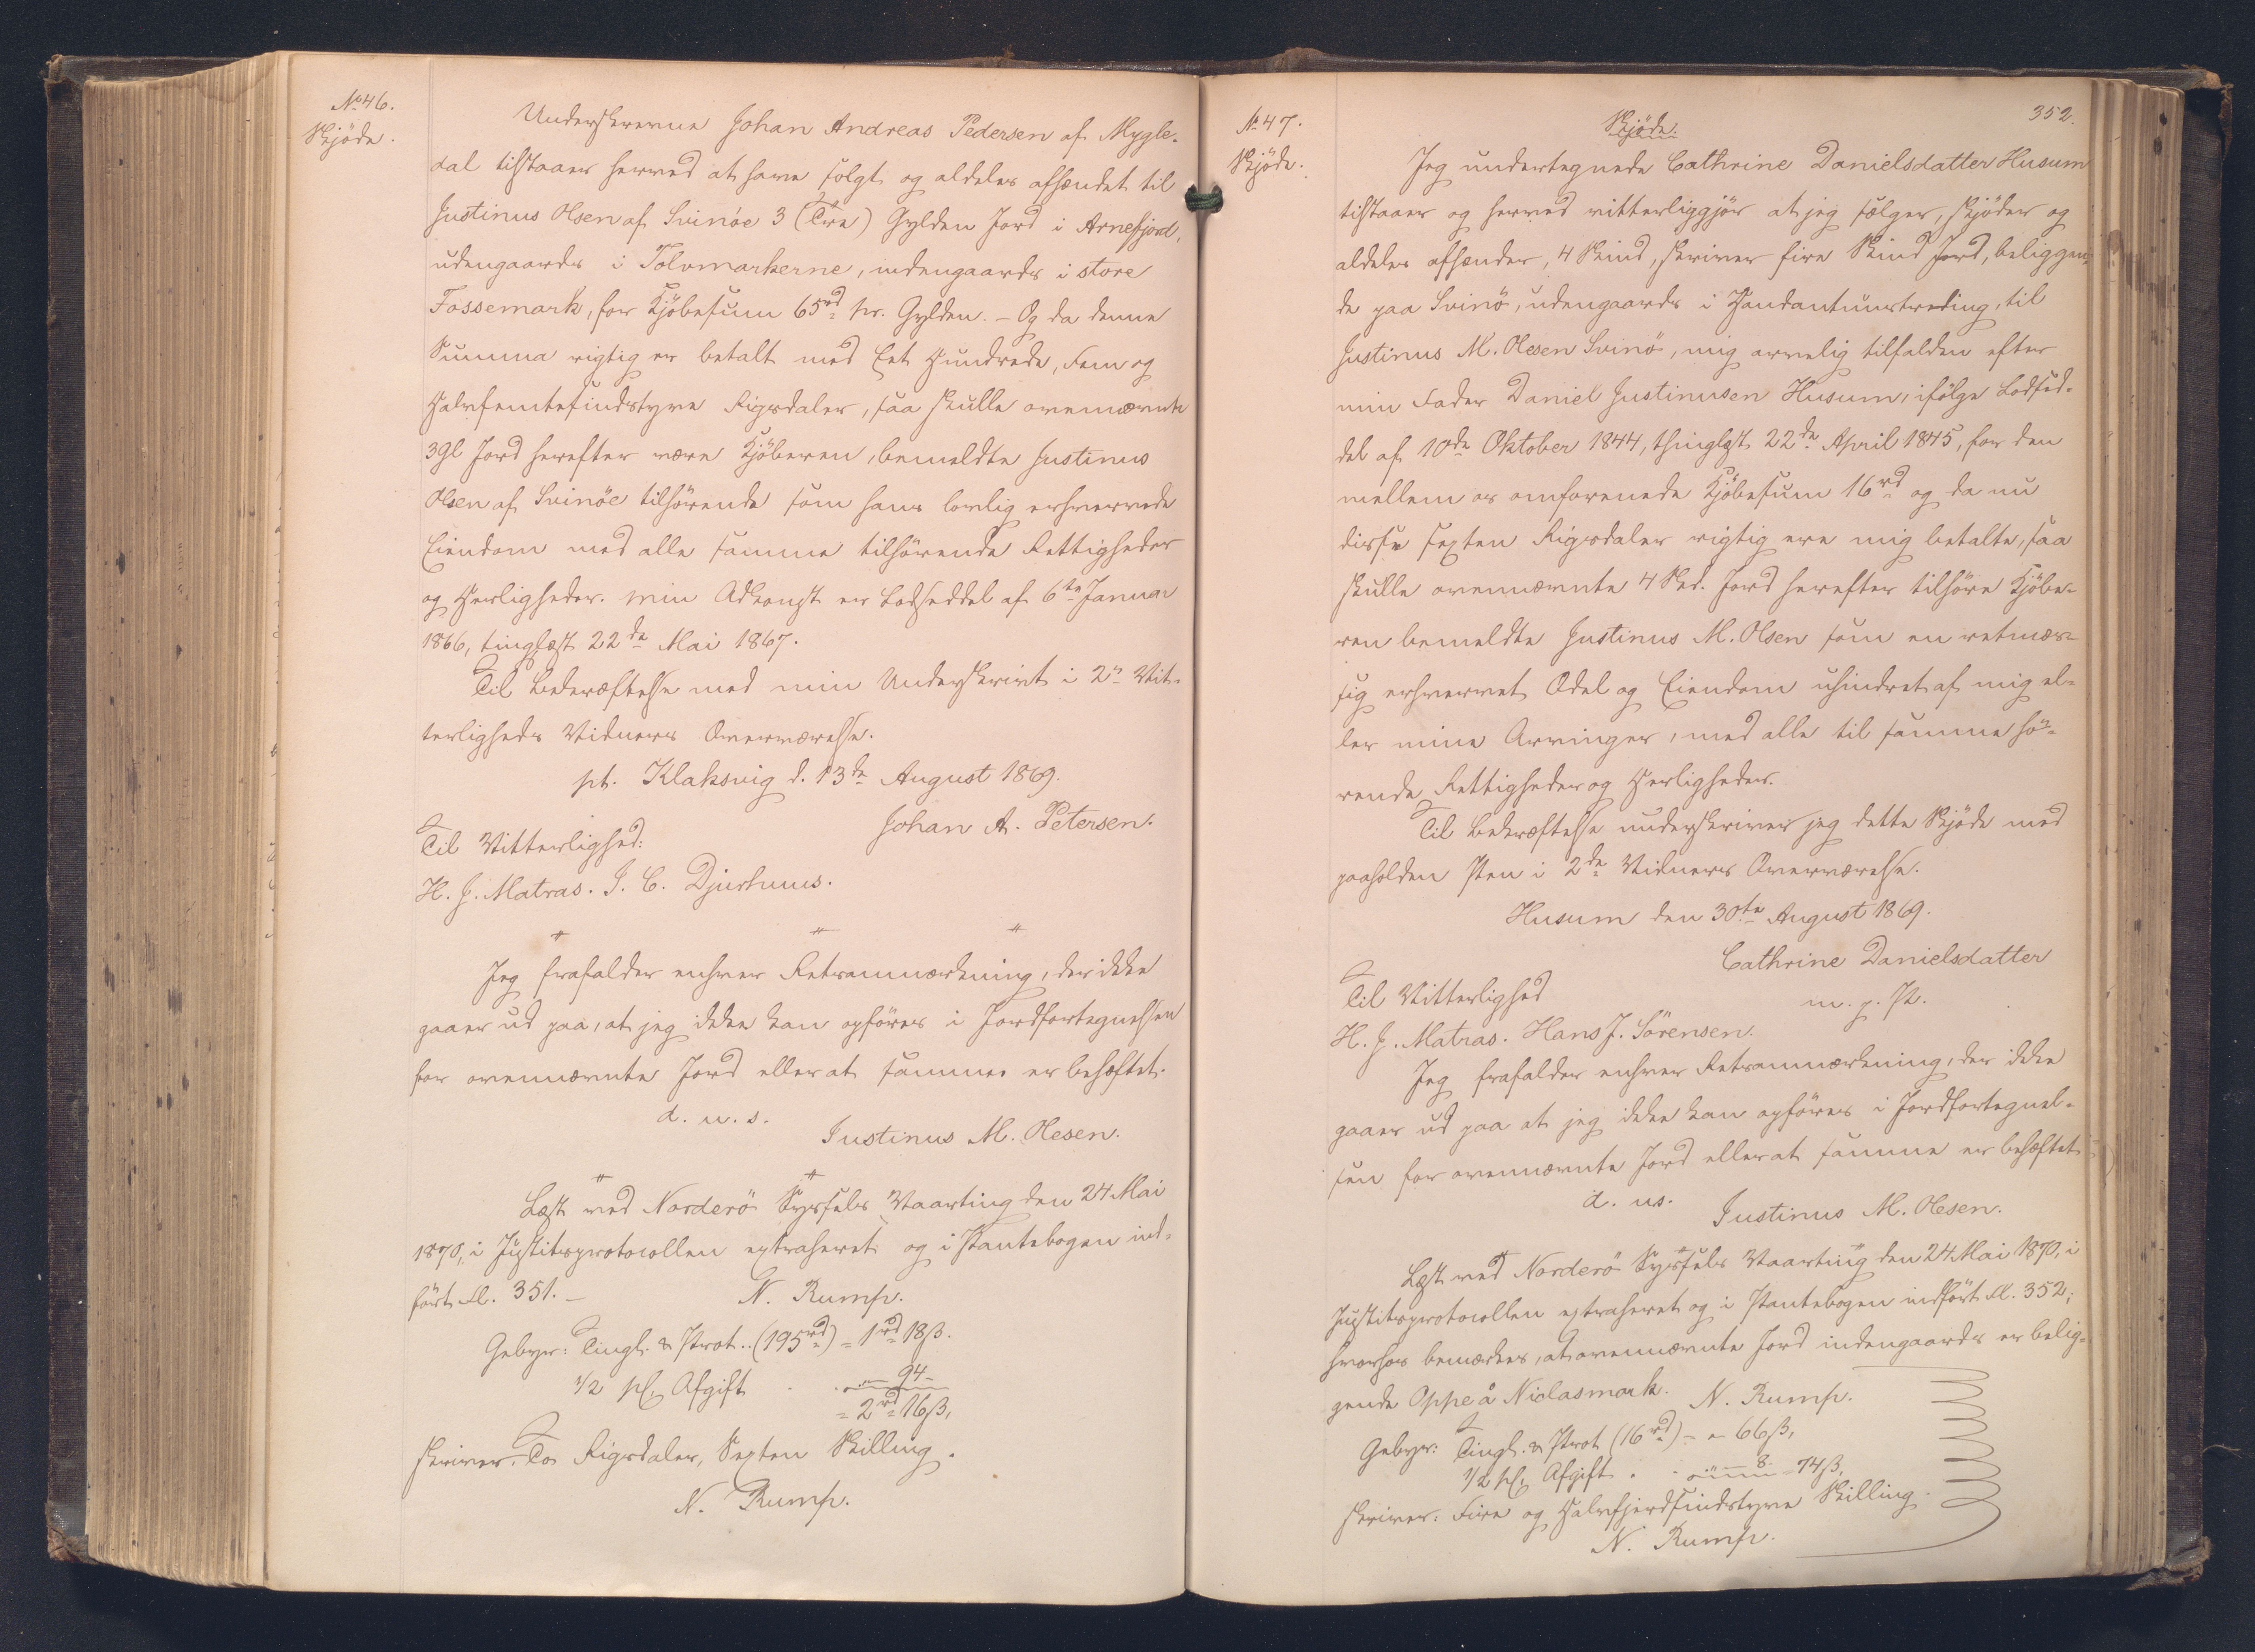 No 46.
Skjöde.
Underskrevne Johan Andreas Pedersen af Mygle-
dal tilstaaer herved at have solgt og aldeles afhændet til
Justinus Olsen af Svinöe 3 (Tre) Gylden Jord i Arnefjord,
udengaards i Tolvmarkerne, indengaards i store
Fossemark, for Kjöbesum 65 rd pr. Gylden. - Og da denne
Summa rigtig er betalt med Eet Hundrede, Fem og
Halvfemtesindstyve Rigsdaler, saa skulle ovennævnte
3 Gl Jord herefter være Kjöberen, bemeldte Justinus
Olsen af Svinöe tilhörende som hans lovlig erhvervede
Eiendom med alle samme tilhörende Rettigheder
og Herligheder. Min Adkomst er Lodseddel af 6te Januar
1866, tinglæst 22de Mai 1867.
Til Bekræftelse med min Underskrivt i 2de Vit-
terligheds Vidners Overværelse.
pt. Klaksvig d. 13de August 1869.
Johan A. Petersen.
Til Vitterlighed:
H. J. Matras. J. C. Djurhuus.
Jeg frafalder enhver Retsanmærkning, der ikke
gaaer ud paa, at jeg ikke kan opföres i Jordfortegnelsen
for ovennævnte Jord eller at samme er behæftet.
d. u. s.
Justinus M. Olesen.
Læst ved Norderö Syssels Vaarting den 24 Mai
1870, i Justitsprotocollen extraheret og i Pantebogen ind-
fört Fl. 351. -
N. Rump.
Gebyr: Tingl. & Prot.. (195 rd) = 1 rd 18 ß.
1/2 pCt Afgift . . " - 94 -
= 2 rd 16 ß,
skriver: To Rigsdaler, Sexten Skilling.
N. Rump.
352.
No 47.
Skjöde.
Skjöde.
Jeg undertegnede Cathrine Danielsdatter Husum
tilstaaer og herved vitterliggjör at jeg sælger, skjöder og
aldeles afhænder, 4 Skind, skriver fire Skind Jord, beliggen-
de paa Svinö, udengaards i , til
Justinus M. Olesen Svinö, mig arvelig tilfalden efter
min Fader Daniel Justinusen Husum, ifölge Lodsed-
del af 10de Oktober 1844, thinglæst 22de April 1845, for den
mellem os omforenede Kjöbesum 16 rd og da nu
disse sexten Rigsdaler rigtig ere mig betalte, saa
skulle ovennævnte 4 Skd. Jord herefter tilhöre Kjöbe-
ren bemeldte Justinus M. Olsen som en retmæs-
sig erhvervet Odel og Eiendom uhindret af mig el-
ler mine Arvinger, med alle til samme hö-
rende Rettigheder og Herligheder.
Til Bekræftelse underskriver jeg dette Skjöde med
paaholden Pen i 2de Vidners Overværelse.
Husum den 30te August 1869.
Cathrine Danielsdatter
m. p. P.
Til Vitterlighed
H. J. Matras. Hans J. Sörensen.
Jeg frafalder enhver Retsanmærkning, der ikke
gaaer ud paa at jeg ikke kan opföres i Jordfortegnel-
sen for ovennævnte Jord eller at samme er behæftet.
d. us.
Justinus M. Olesen.
Læst ved Norderö Syssels Vaarting den 24 Mai 1870, i
Justitsprotocollen extraheret og i Pantebogen indfört Fl. 352;
hvorhos bemærkes, at ovennævnte Jord indengaards er belig-
gende Oppe å Niclasmork.
N. Rump.
Gebyr: Tingl. & Prot (16 rd) - " 66 ß,
1/2 pCt Afgift . . 8. = 74 ß,
skriver: Fire og Halvfjerdsindstyve Skilling.
N. Rump.